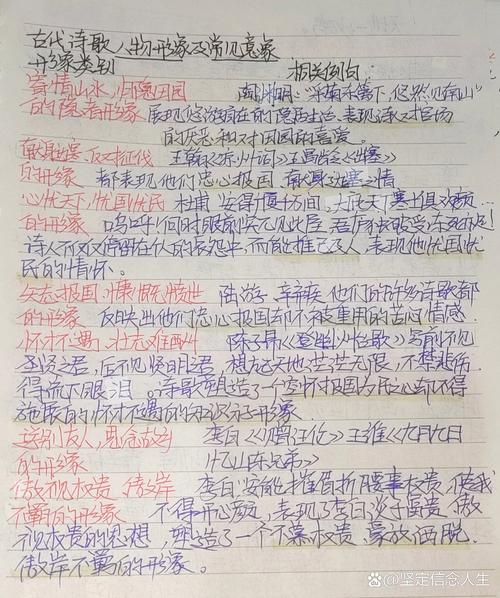 古代诗歌人物形象及常见意象
形象类别 相关例句:
寄情山水,归隐田园 陶渊明:"采菊东篱下,悠然见南山"
的隐者形象 展现悠游自在的隐居生活、表现诗人对官场
的厌恶和对田园的喜爱。
献身边塞、反对征伐 王翰《凉州词》王昌龄《出塞》
的形象 都表现他们忠心报国、献身边塞之情
心忧天下,忧国忧民 杜甫 安得广厦千万间,大庇天下寒士俱欢颜
的形象 呜呼!何时眼前突兀见此屋 吾庐独破受冻死亦足
诗人不仅仅停留在个人的哀怨中,而能推己及人,表现他忧国忧
民的情怀。
矢志报国、慷慨愤世 陆游、辛弃疾 他们的许多诗歌都
的形象 反映出他们忠心报国却不被重用的苦心情感
怀才不遇,壮志难酬 陈子昂《登幽州台歌》写前不见
圣贤之君,后不见贤明君,想起天地茫茫无限,不禁悲伤
得流下眼泪。诗歌塑造了一个空怀报国为民之心却不得
施展的怀才不遇的知识分子形象
送别友人,思念故乡 李白《赠汪伦》王维《九月九日
的形象 忆山东兄弟》
傲视权贵、傲岸 李白:安能摧眉折腰事权贵,使我
不羁的形象 不得开心颜,表现了李白淡于富贵、傲
视权贵的思想,塑造了一个不慕权贵、豪放洒脱、
傲岸不羁的形象。
@坚定信念人生